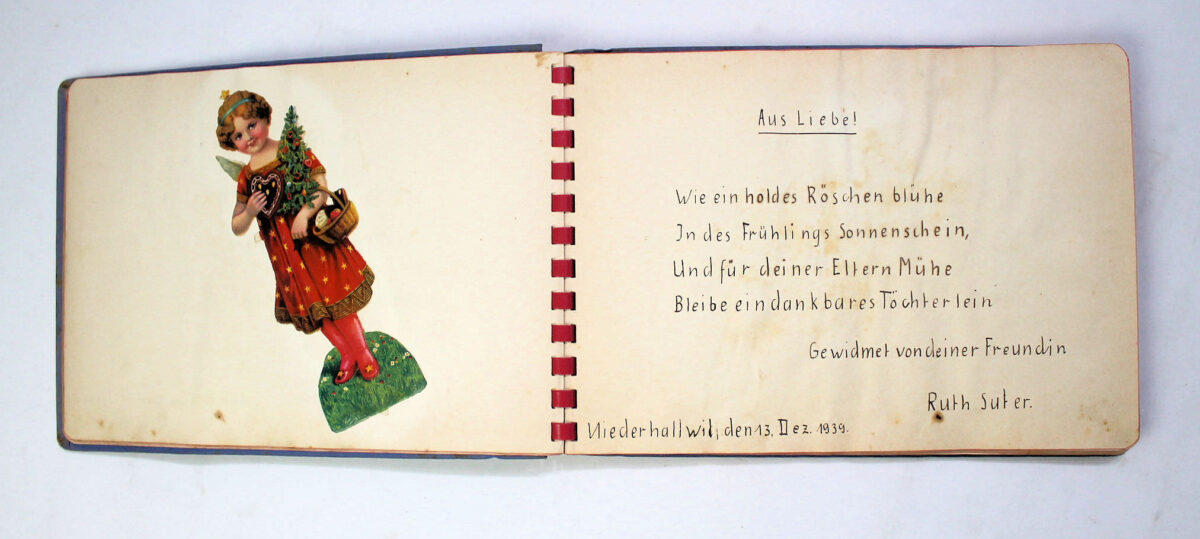 Aus Liebe!
Wie ein holdes Röschen blühe
In des Frühlings Sonnenschein,
Und für deiner Eltern Mühe
Bleibe ein dankbares Töchterlein
Gewidmet von deiner Freundin
Ruth Suter.
Niederhallwil, den 13. Dez. 1939.